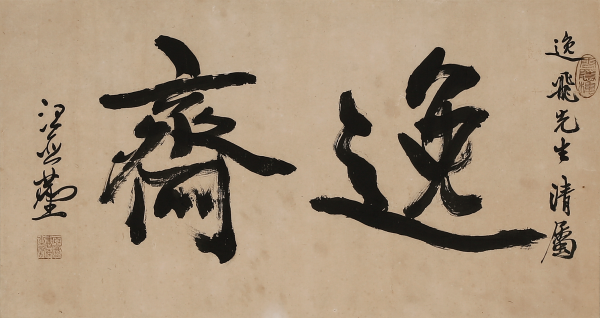 逸飛先生清屬
逸齋